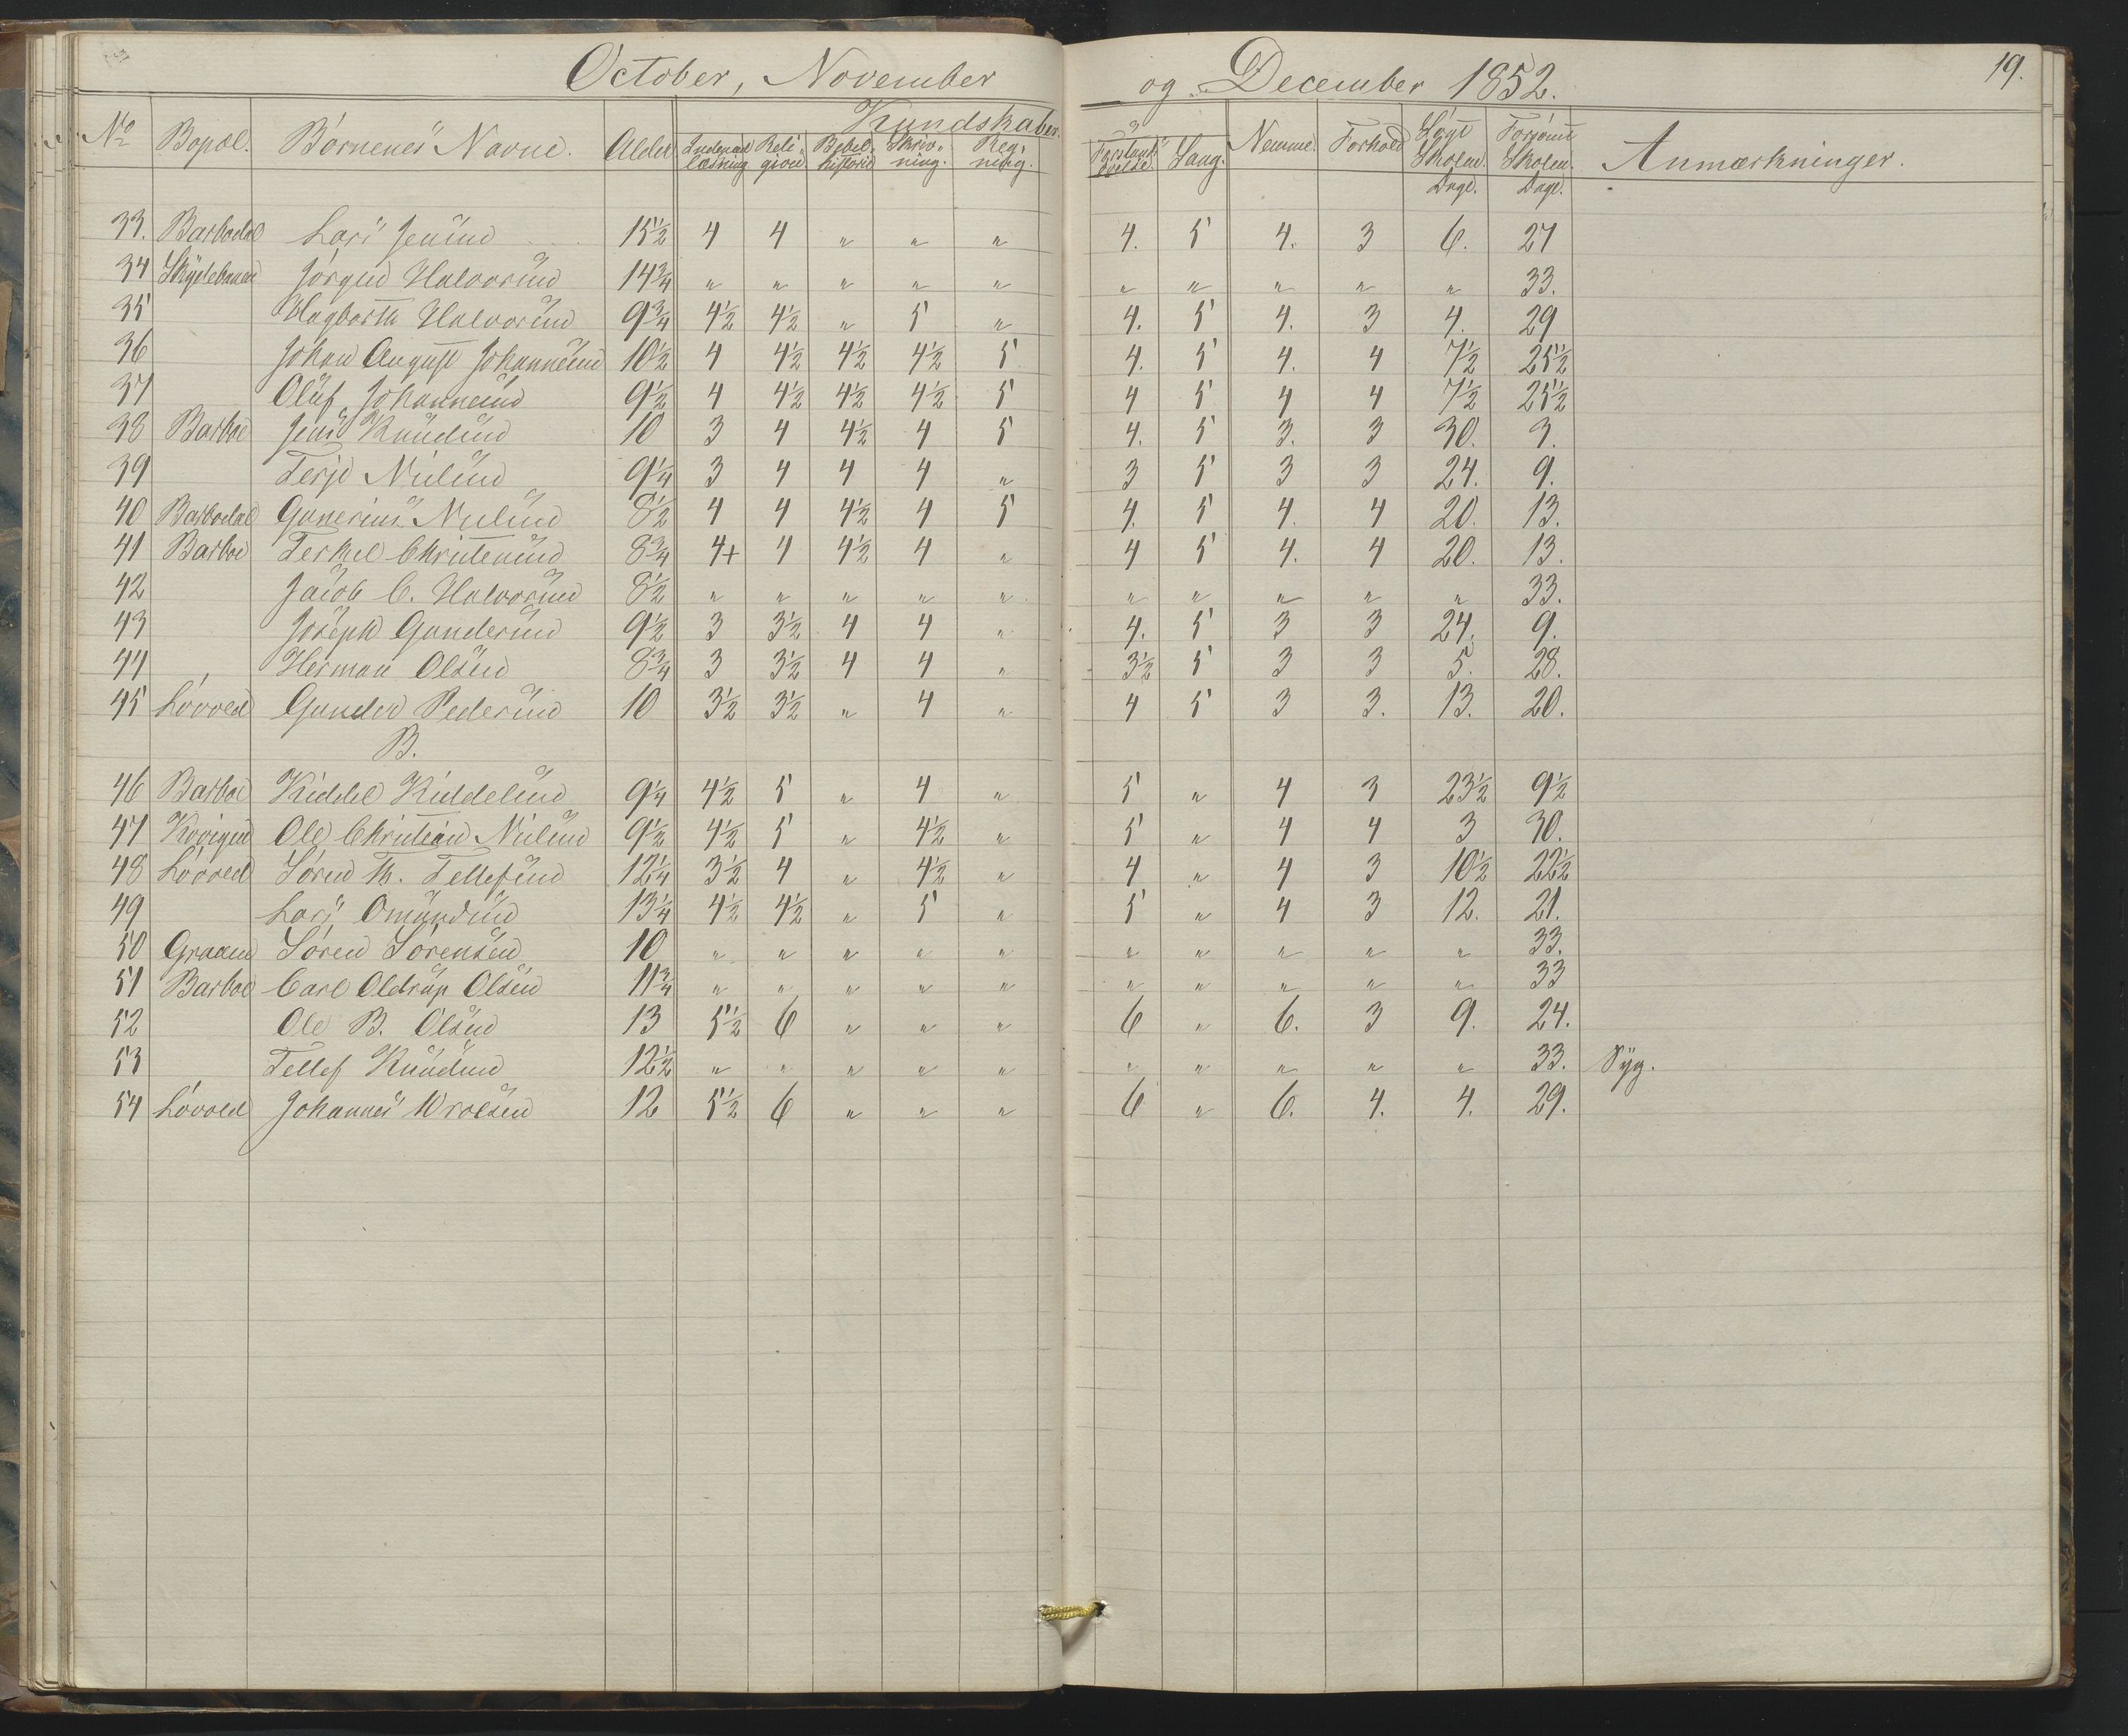 October, November og December 1852. 19.
Kundskaber.
No Bopæl. Børnenes Navne. Alder Indenad læsning Reli- gion Bibel- historie Skriv- ning. Reg- ning. Forstands øvelse. Sang. Nemme. Forhold Søgt Skolen. Dage. Forsømt Skolen. Dage. Anmærkninger.
33. Barbodal Lars Jensen 15½ 4 4 " " " 4. 5 4. 3 6. 27
34 Skydebanen Jørgen Halvorsen 14¾ " " " " " " " " " " 33.
35 Hagbarth Halvorsen 9¾ 4½ 4½ " 5 " 4. 5 4. 3 4. 29
36 Johan August Johannesen 10½ 4 4½ 4½ 4½ 5 4. 5 4. 4 7½ 25½
37 Oluf Johannesen 9½ 4 4½ 4½ 4½ 5 4 5 4 4 7½ 25½
38 Barboe Jens Knudsen 10 3 4 4½ 4 5 4. 5 3. 3 30. 3.
39 Terje Nielsen 9¼ 3 4 4 4 " 3 5 3 3 24. 9.
40 Barbodal Gunerius Nielsen 8½ 4 4 4½ 4 5 4. 5 4. 4 20. 13.
41 Barboe Terkel Christensen 8¾ 4+ 4 4½ 4 " 4 5 4. 4 20. 13.
42 Jacob C. Halvorsen 8½ " " " " " " " " " " 33.
43 Joseph Gundersen 9½ 3 3½ 4 4 " 4. 5 3 3 24. 9.
44 Herman Olsen 8¾ 3 3½ 4 4 " 3½ 5 3 3 5. 28.
45 Løvold Gunder Pedersen 10 3½ 3½ " 4 " 4 5 3 3. 13. 20.
B.
46 Barboe Kiddel Kiddelsen 9¼ 4½ 5 " 4 " 5 " 4 3 23½ 9½
47 Kvigen Ole Christian Nielsen 9½ 4½ 5 " 4½ " 5 " 4 4 3 30.
48 Løvold Søren Th. Tellefsen 12¼ 3½ 4 " 4½ " 4 " 4 3 10½ 22½
49 Lars Omundsen 13¼ 4½ 4½ " 5 " 5 " 4 3 12. 21.
50 Graaen Søren Sørensen 10 " " " " " " " " " " 33.
51 Barboe Carl Oldrup Olsen 11¾ " " " " " " " " " " 33
52 Ole B. Olsen 13 5½ 6 " " " 6 " 6. 3 9. 24.
53 Tellef Knudsen 12½ " " " " " " " " " " 33. Syg.
54 Løvold Johannes Wrolsen 12 5½ 6 " " " 6 " 6. 4. 4. 29.